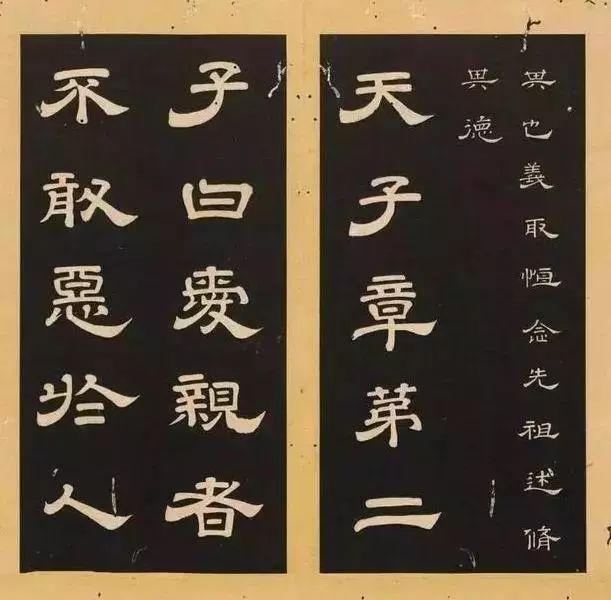 其也義取恒念先祖述脩
其德
天子章第二
子曰愛親者
不敢惡於人